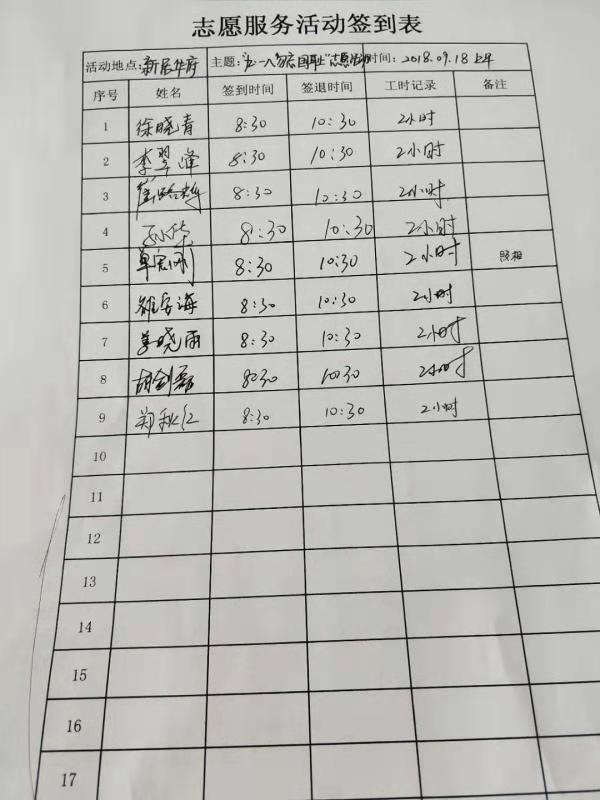 志愿服务活动签到表
活动地点：新居华府 主题："九一八勿忘国耻"志愿活动 时间：2018.09.18上午
序号 姓名 签到时间 签退时间 工时记录 备注
1 徐晓青 8:30 10:30 2小时
2 李翠峰 8:30 10:30 2小时
3 8:30 10:30 2小时
4 孙华 8:30 10:30 2小时
5 8:30 10:30 2小时 照相
6 8:30 10:30 2小时
7 姜晓雨 8:30 10:30 2小时
8 胡剑磊 8:30 10:30 2小时
9 郑秋红 8:30 10:30 2小时
10
11
12
13
14
15
16
17